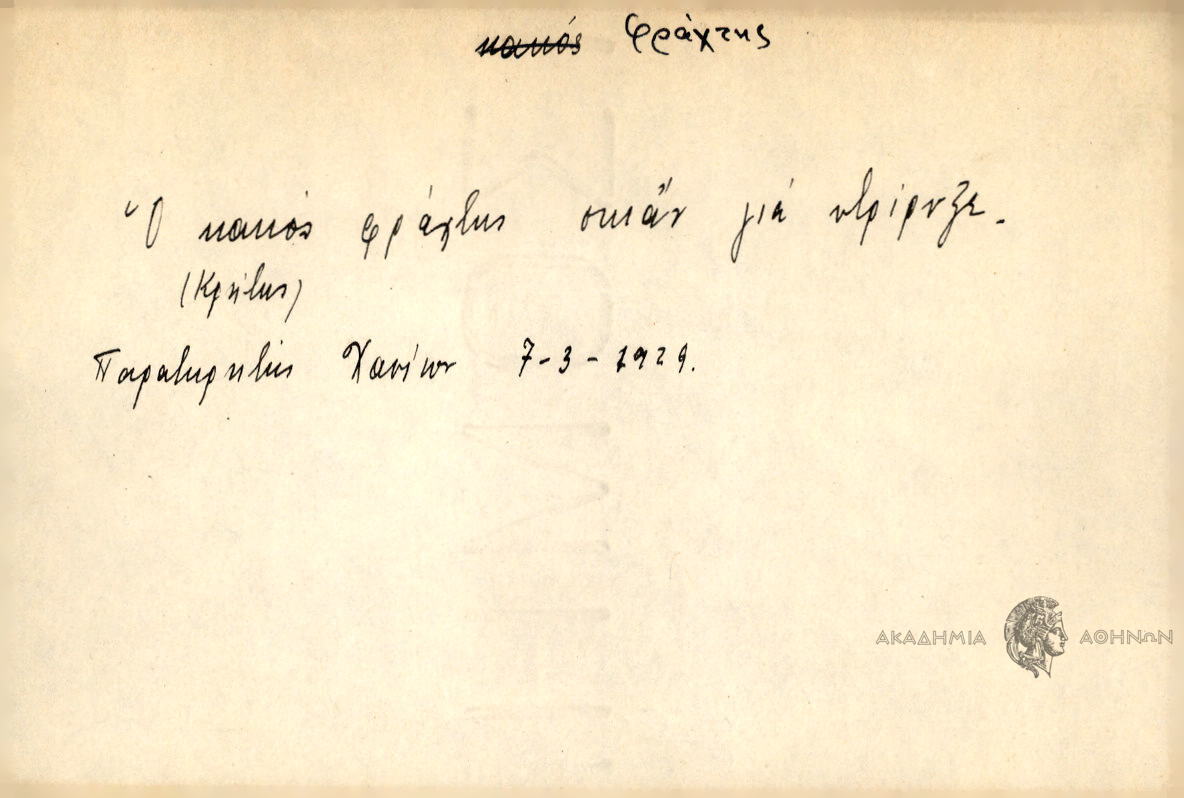 ~~κακός~~ Φράχτης
Ὁ κακός φράχτης σκιάν γιά
(Κρήτης)
Παρατηρητής Χανίων 7-3-1929.
ΑΚΑΔΗΜΙΑ ΑΘΗΝΩΝ